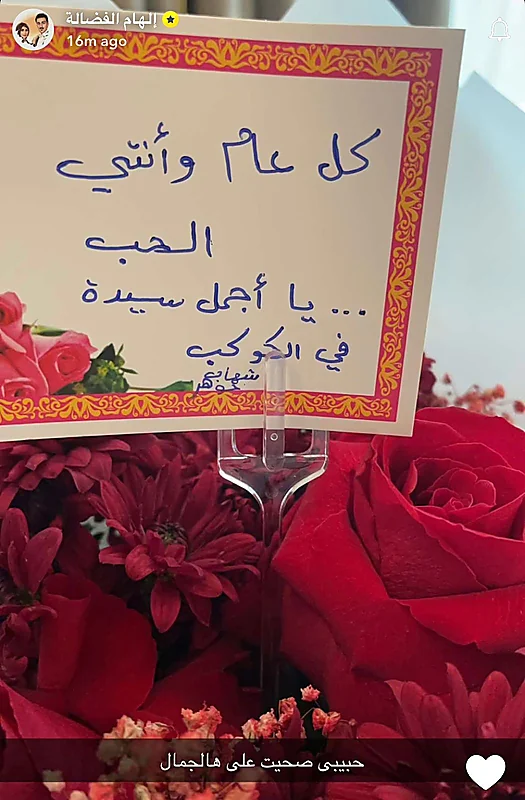 إلهام الفضالة
16m ago
كل عام وأنتي
الحب
... يا أجمل سيدة
في الكوكب
شهاب
جوهر
حبيبى صحيت على هالجمال